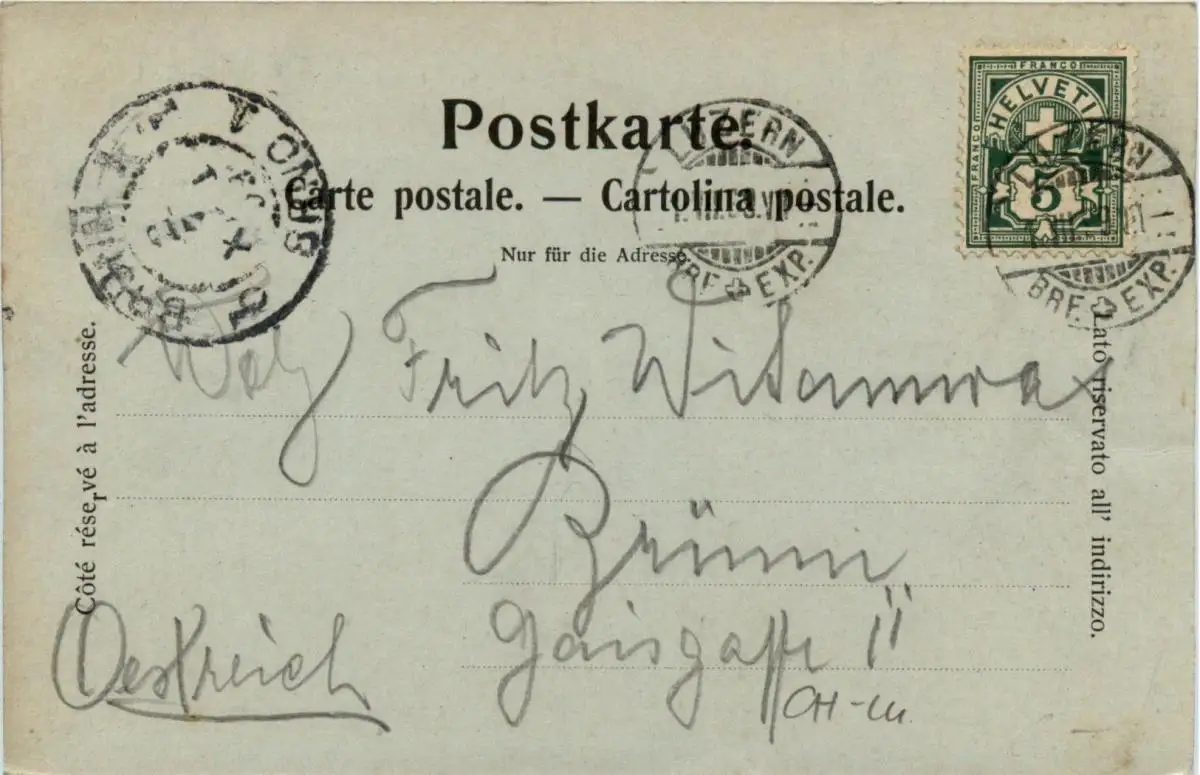 Postkarte.
Carte postale. — Cartolina postale.
Nur für die Adresse.
FRANCO
FRANCO
HELVETIA
5
LUZERN
BRF. EXP.
LUZERN
BRF. EXP.
Côté réservé à l'adresse.
Lato riservato all' indirizzo.
Fritz
Brünn
Gaisgasse 11
Oestreich
CH-LU